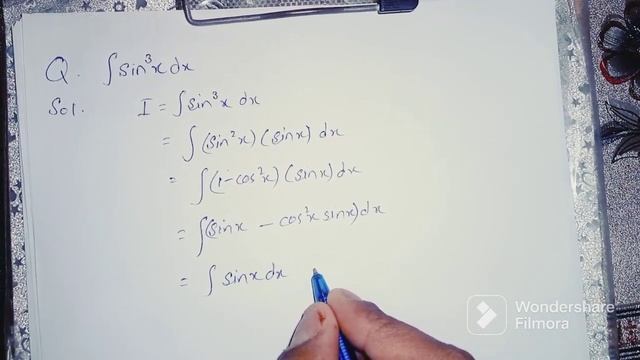 Q. ∫sin³x dx
Sol. I = ∫sin³x dx
= ∫(sin²x)(sinx) dx
= ∫(1-cos²x)(sinx)dx
= ∫(sinx - cos²x sinx)dx
= ∫ sinx dx
Wondershare
Filmora